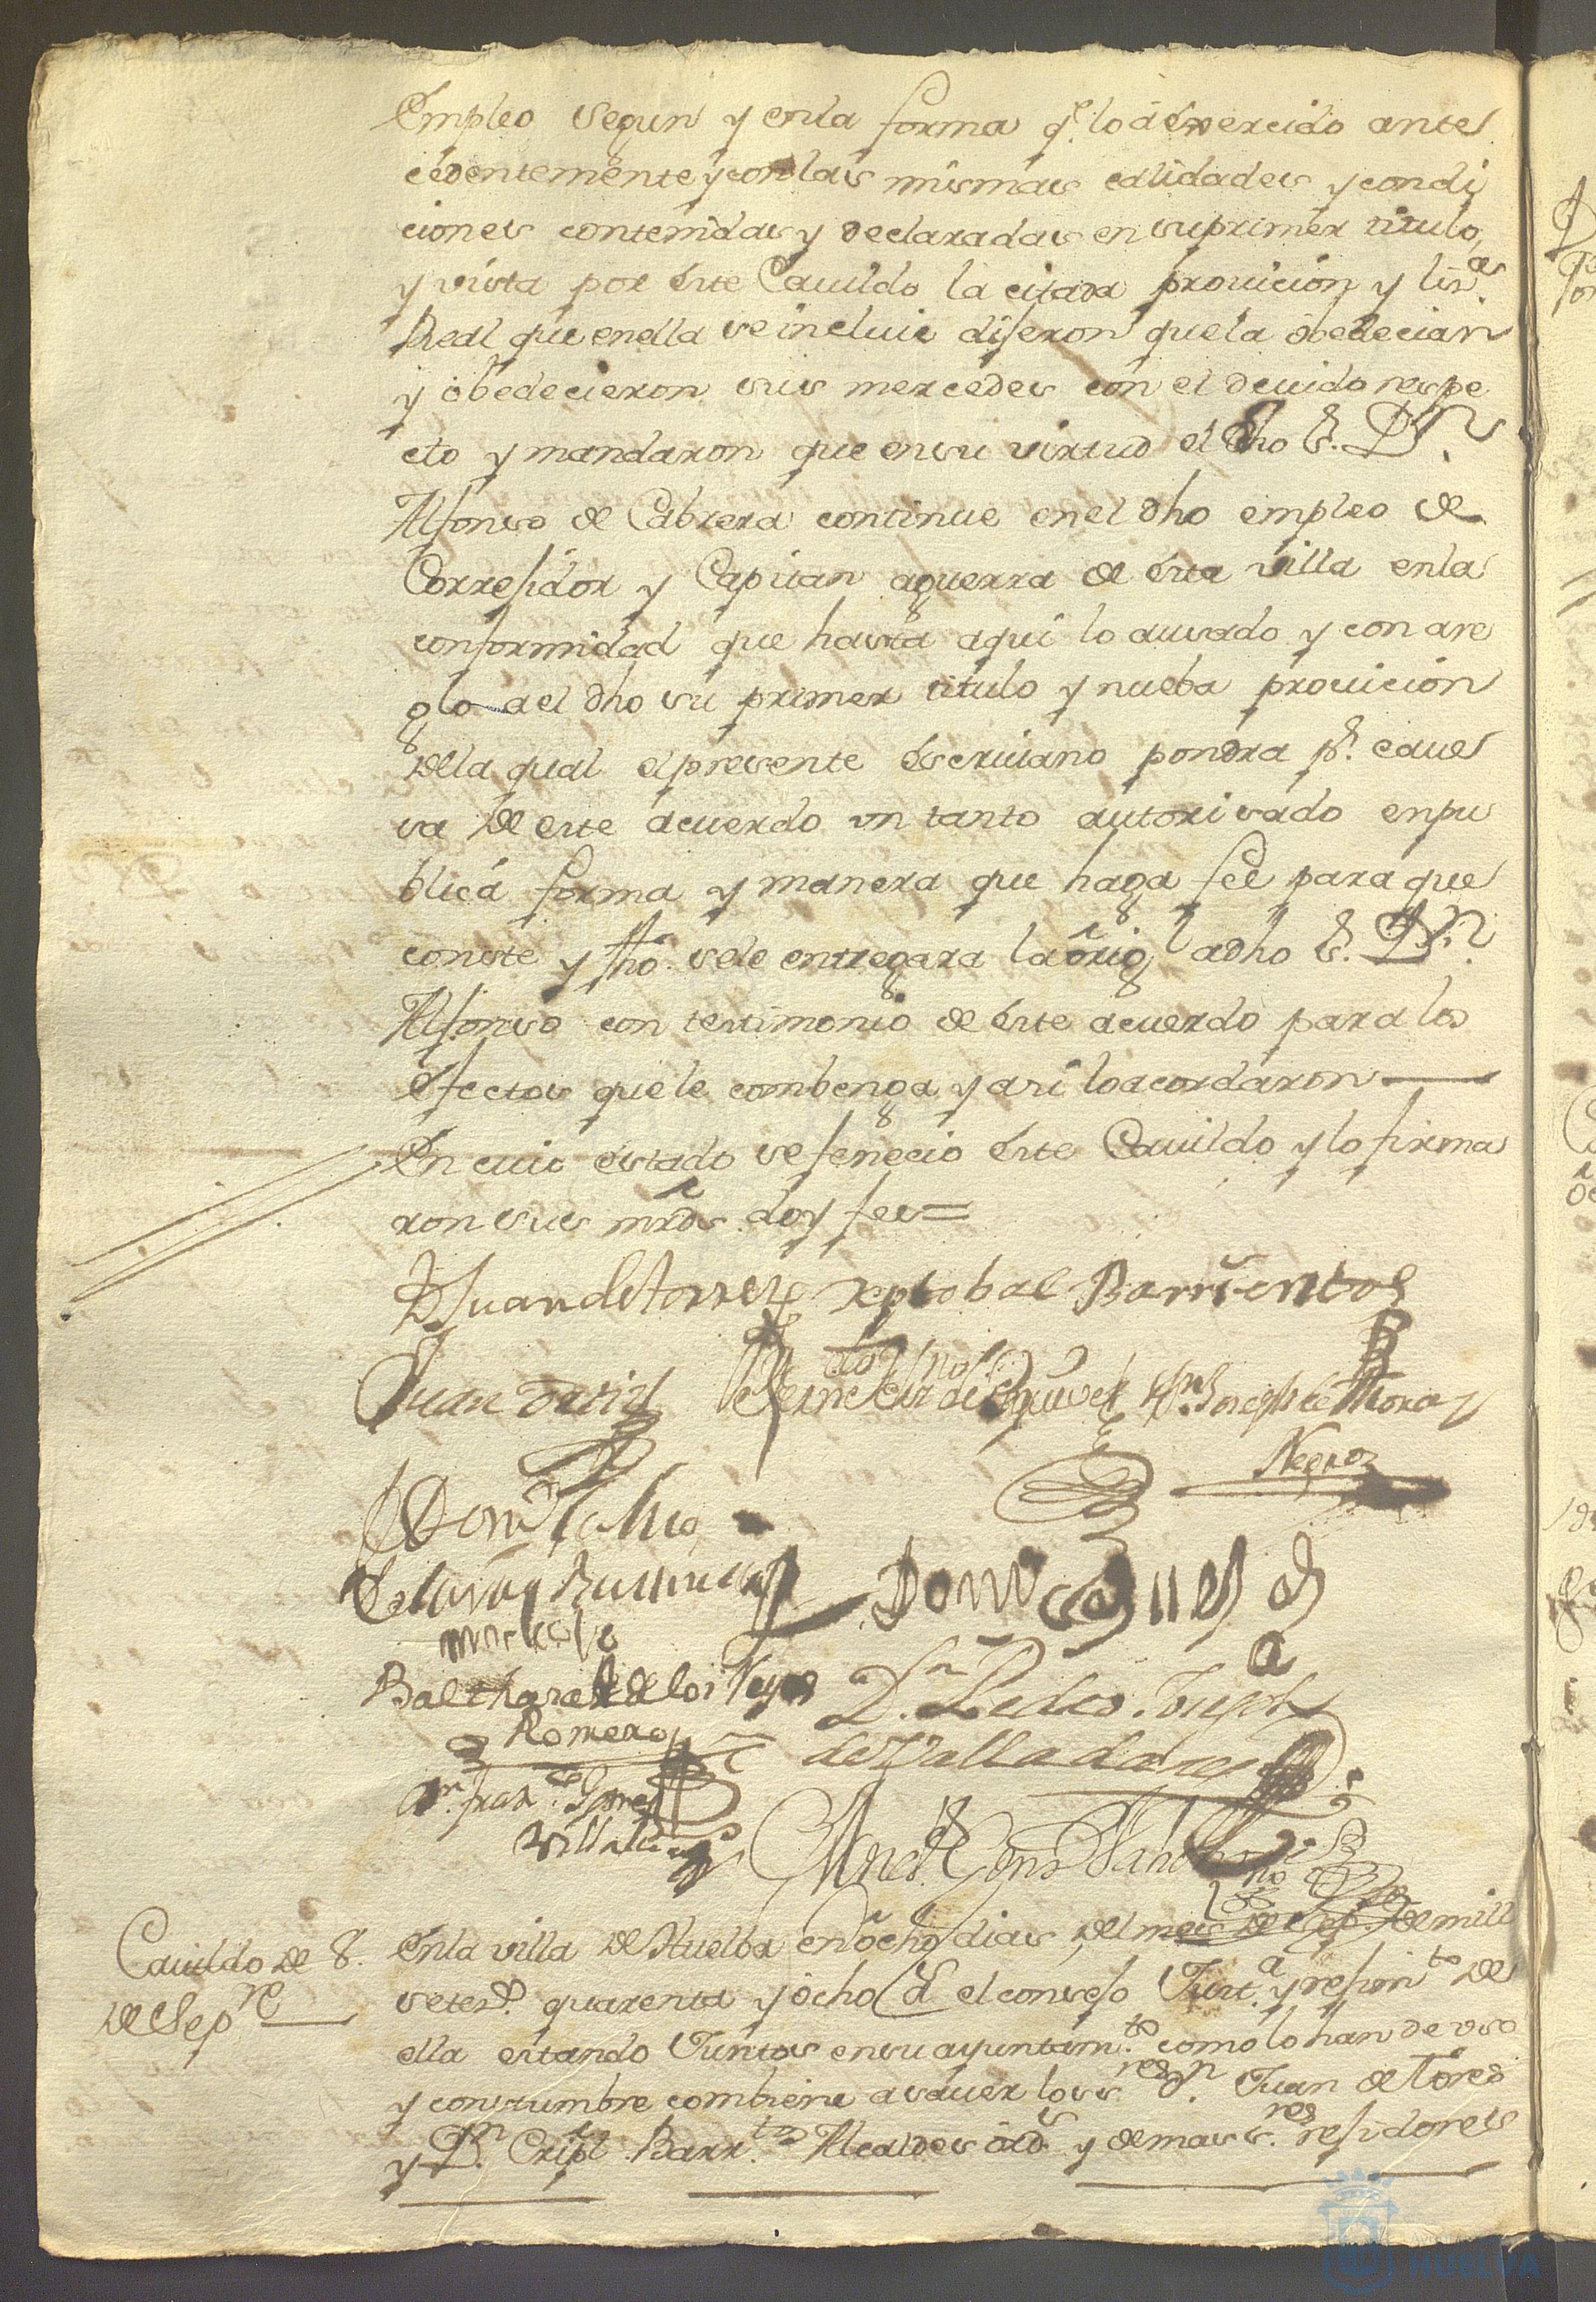 Empleo segun y enla forma q.e lo à éxercido ante
cedentemente y con las mismas calidades y condi
ciones contenidas y declaradas en su primer titulo
y vista por éste Cauildo la citada prouicion y lis.as
Real que en ella se incluie dijeron que la obedecian
y obedecieron sus mercedes con el deuido respe
cto y mandaron que en su virtud el dho S.r D.n
Alfonso de Cabrera continue en el dho empleo de
Corregidor y Capitan aguerra de ésta villa en la
conformidad que hasta aqui lo a usado y con are
glo a el dho su primer titulo y nueba prouicion
de la qual el presente éscriuano pondra p.r caue
sa de este acuerdo vn tanto autorisado en pu
blica forma y manera que haga feé para que
conste y fho. se le entregara la orig.l a dho S.r D.n
Alfonso con testimonio de éste acuerdo para los
efectos que le combenga y asi lo acordaron
En cuio estado se fenecio éste Cauildo y lo firma
ron sus mrds. doy fee=
D Juan de torres Xptobal Barrientos
Juan
de Esquivel de Mora y
Negro
Balthasar de los Reyes
Romero
D.n Pedro Joseph
de Valladares
Cauildo de 8.
de Sep.re
En la villa de Huelba en ocho dias del mes de Sep.re de mill
setes.o quarenta y ocho a.s el consejo Just.a y regim.to de
ella estando Juntos en su ayuntam.to como lo han de vso
y constumbre combiene a sauer los s.res d.n Juan de tores
y D.n Cristl. Barr.tos Alcaldes ord.s y demas s.res regidores
HUELVA